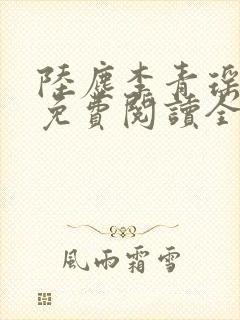 陸塵李青瑤
免費閱讀全
風雨霜雪